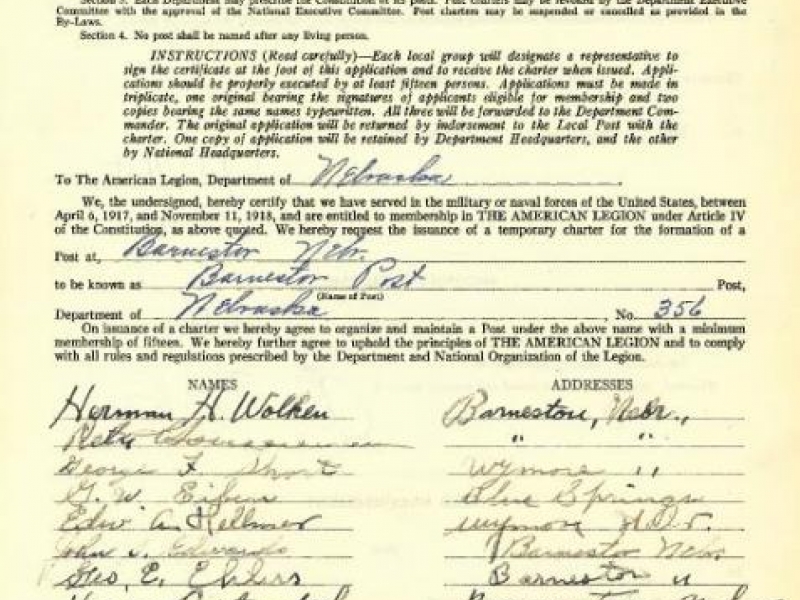 Section 3. Each Department may prescribe the Constitution of its posts. Post charters may be revoked by the Department Executive
Committee with the approval of the National Executive Committee. Post charters may be suspended or cancelled as provided in the
By-Laws.
Section 4. No post shall be named after any living person.
INSTRUCTIONS (Read carefully)—Each local group will designate a representative to
sign the certificate at the foot of this application and to receive the charter when issued. Appli-
cations should be properly executed by at least fifteen persons. Applications must be made in
triplicate, one original bearing the signatures of applicants eligible for membership and two
copies bearing the same names typewritten. All three will be forwarded to the Department Com-
mander. The original application will be returned by indorsement to the Local Post with the
charter. One copy of application will be retained by Department Headquarters, and the other
by National Headquarters.
To The American Legion, Department of Nebraska
We, the undersigned, hereby certify that we have served in the military or naval forces of the United States, between
April 6, 1917, and November 11, 1918, and are entitled to membership in THE AMERICAN LEGION under Article IV
of the Constitution, as above quoted. We hereby request the issuance of a temporary charter for the formation of a
Post at, Barnestor Nebr.
to be known as Barnestor Post Post,
(Name of Post)
Department of Nebraska, No. 356
On issuance of a charter we hereby agree to organize and maintain a Post under the above name with a minimum
membership of fifteen. We hereby further agree to uphold the principles of THE AMERICAN LEGION and to comply
with all rules and regulations prescribed by the Department and National Organization of the Legion.
NAMES ADDRESSES
Herman H. Wolken Barneston, Nebr.,
" "
George F. Short Wymore "
G. W. Eiben Blue Springs
Edw A. Hellmer Wymore
John Edwards Barnestor Nebr.
Geo. E. Ehlers Barnestor "